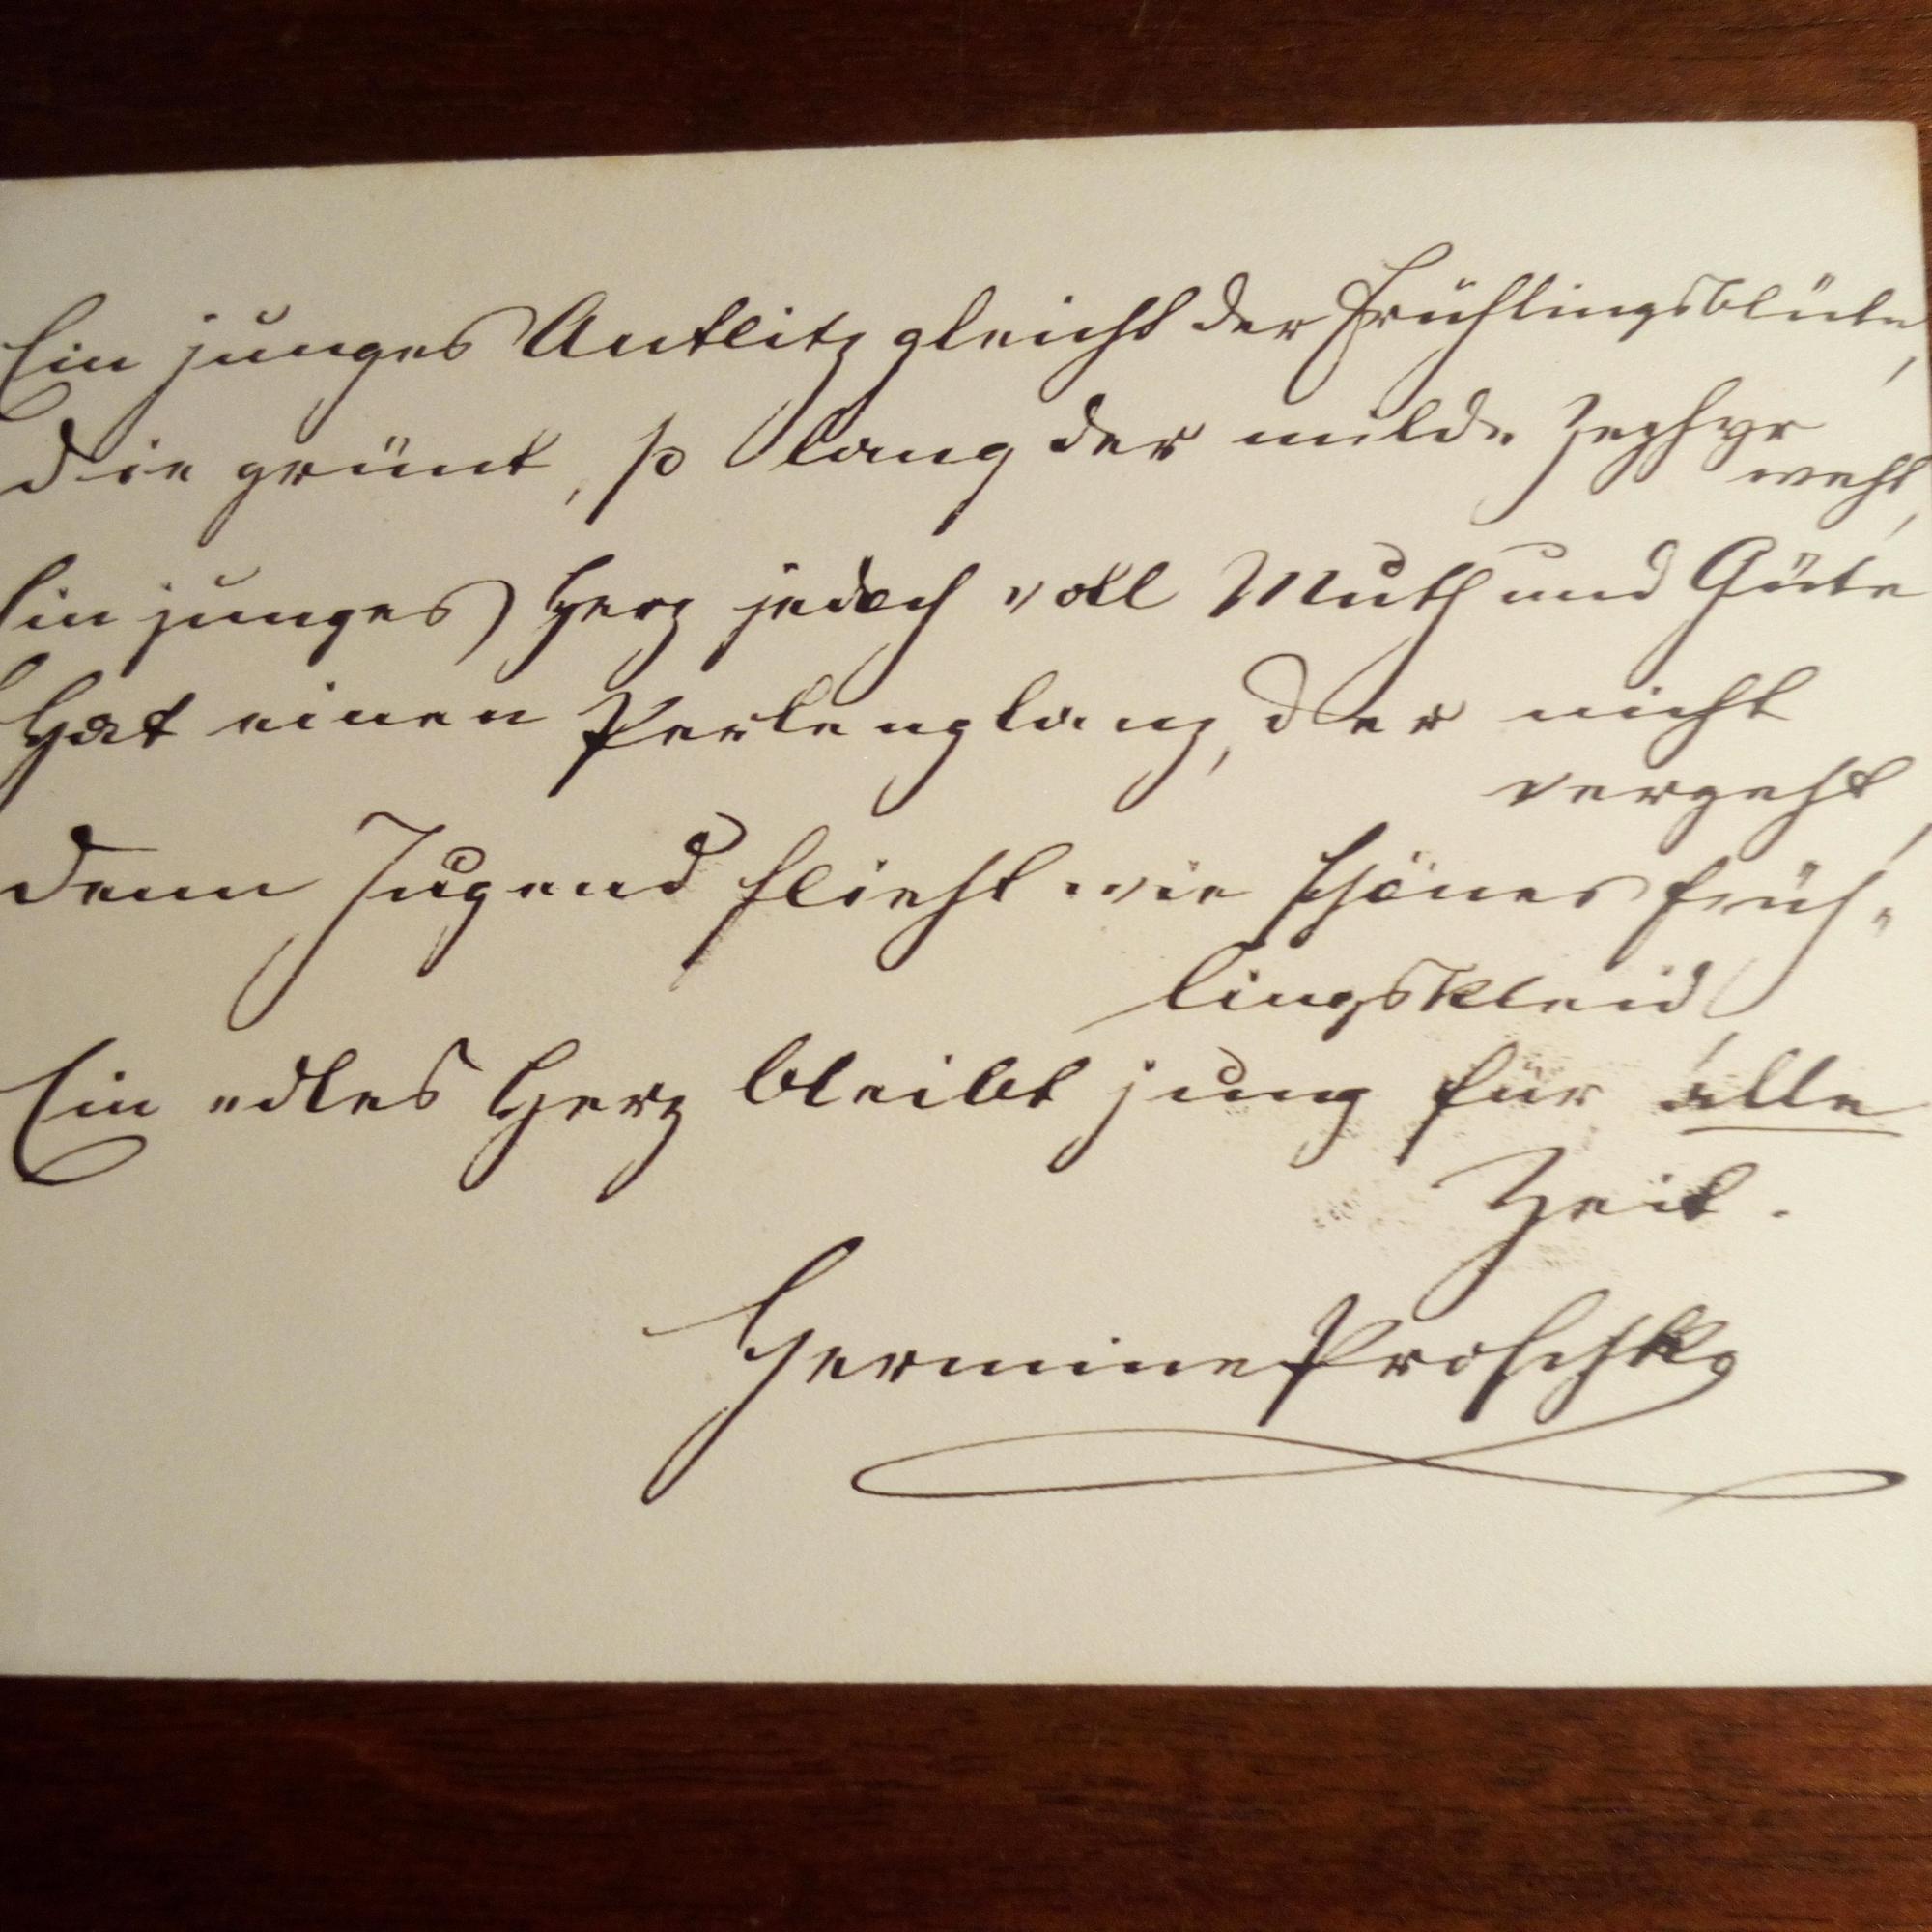 Ein junges Antlitz gleicht der Frühlingsblüte,
die grünt, so lang der milde Zephyr
weht,
Ein junges Herz jedoch voll Muth und Güte
Hat einen Perlenglanz, der nicht
vergeht,
denn Jugend flieht wie schönes Früh-
lingskleid,
Ein edles Herz bleibt jung für alle
Zeit.
Hermine Proschko